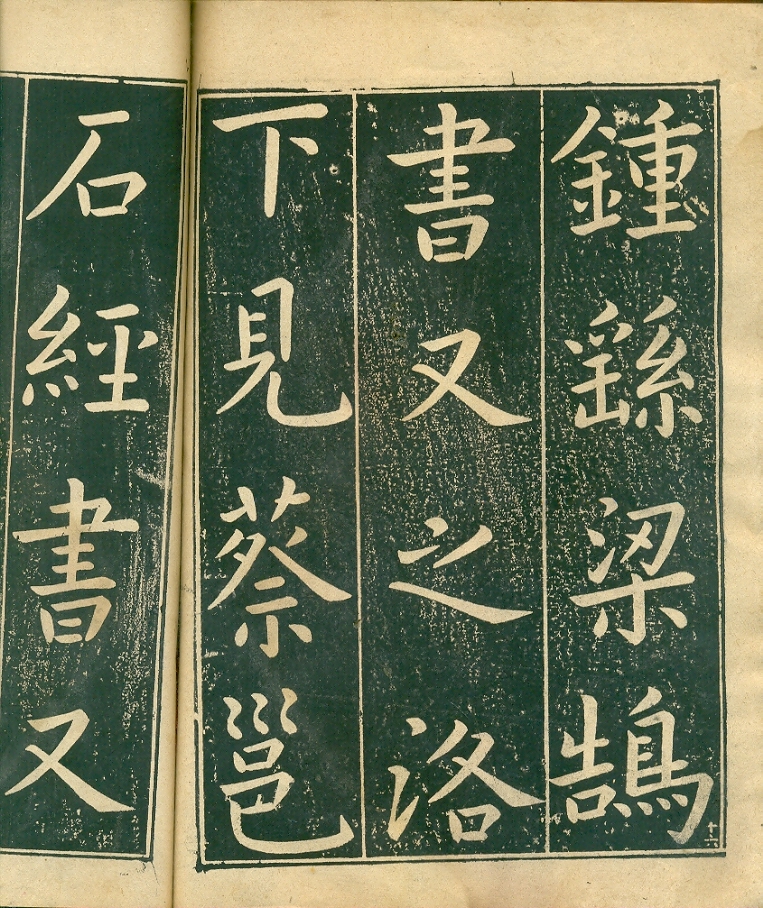 鍾繇梁鵠
書又之洛
下見蔡邕
石經書又
十六